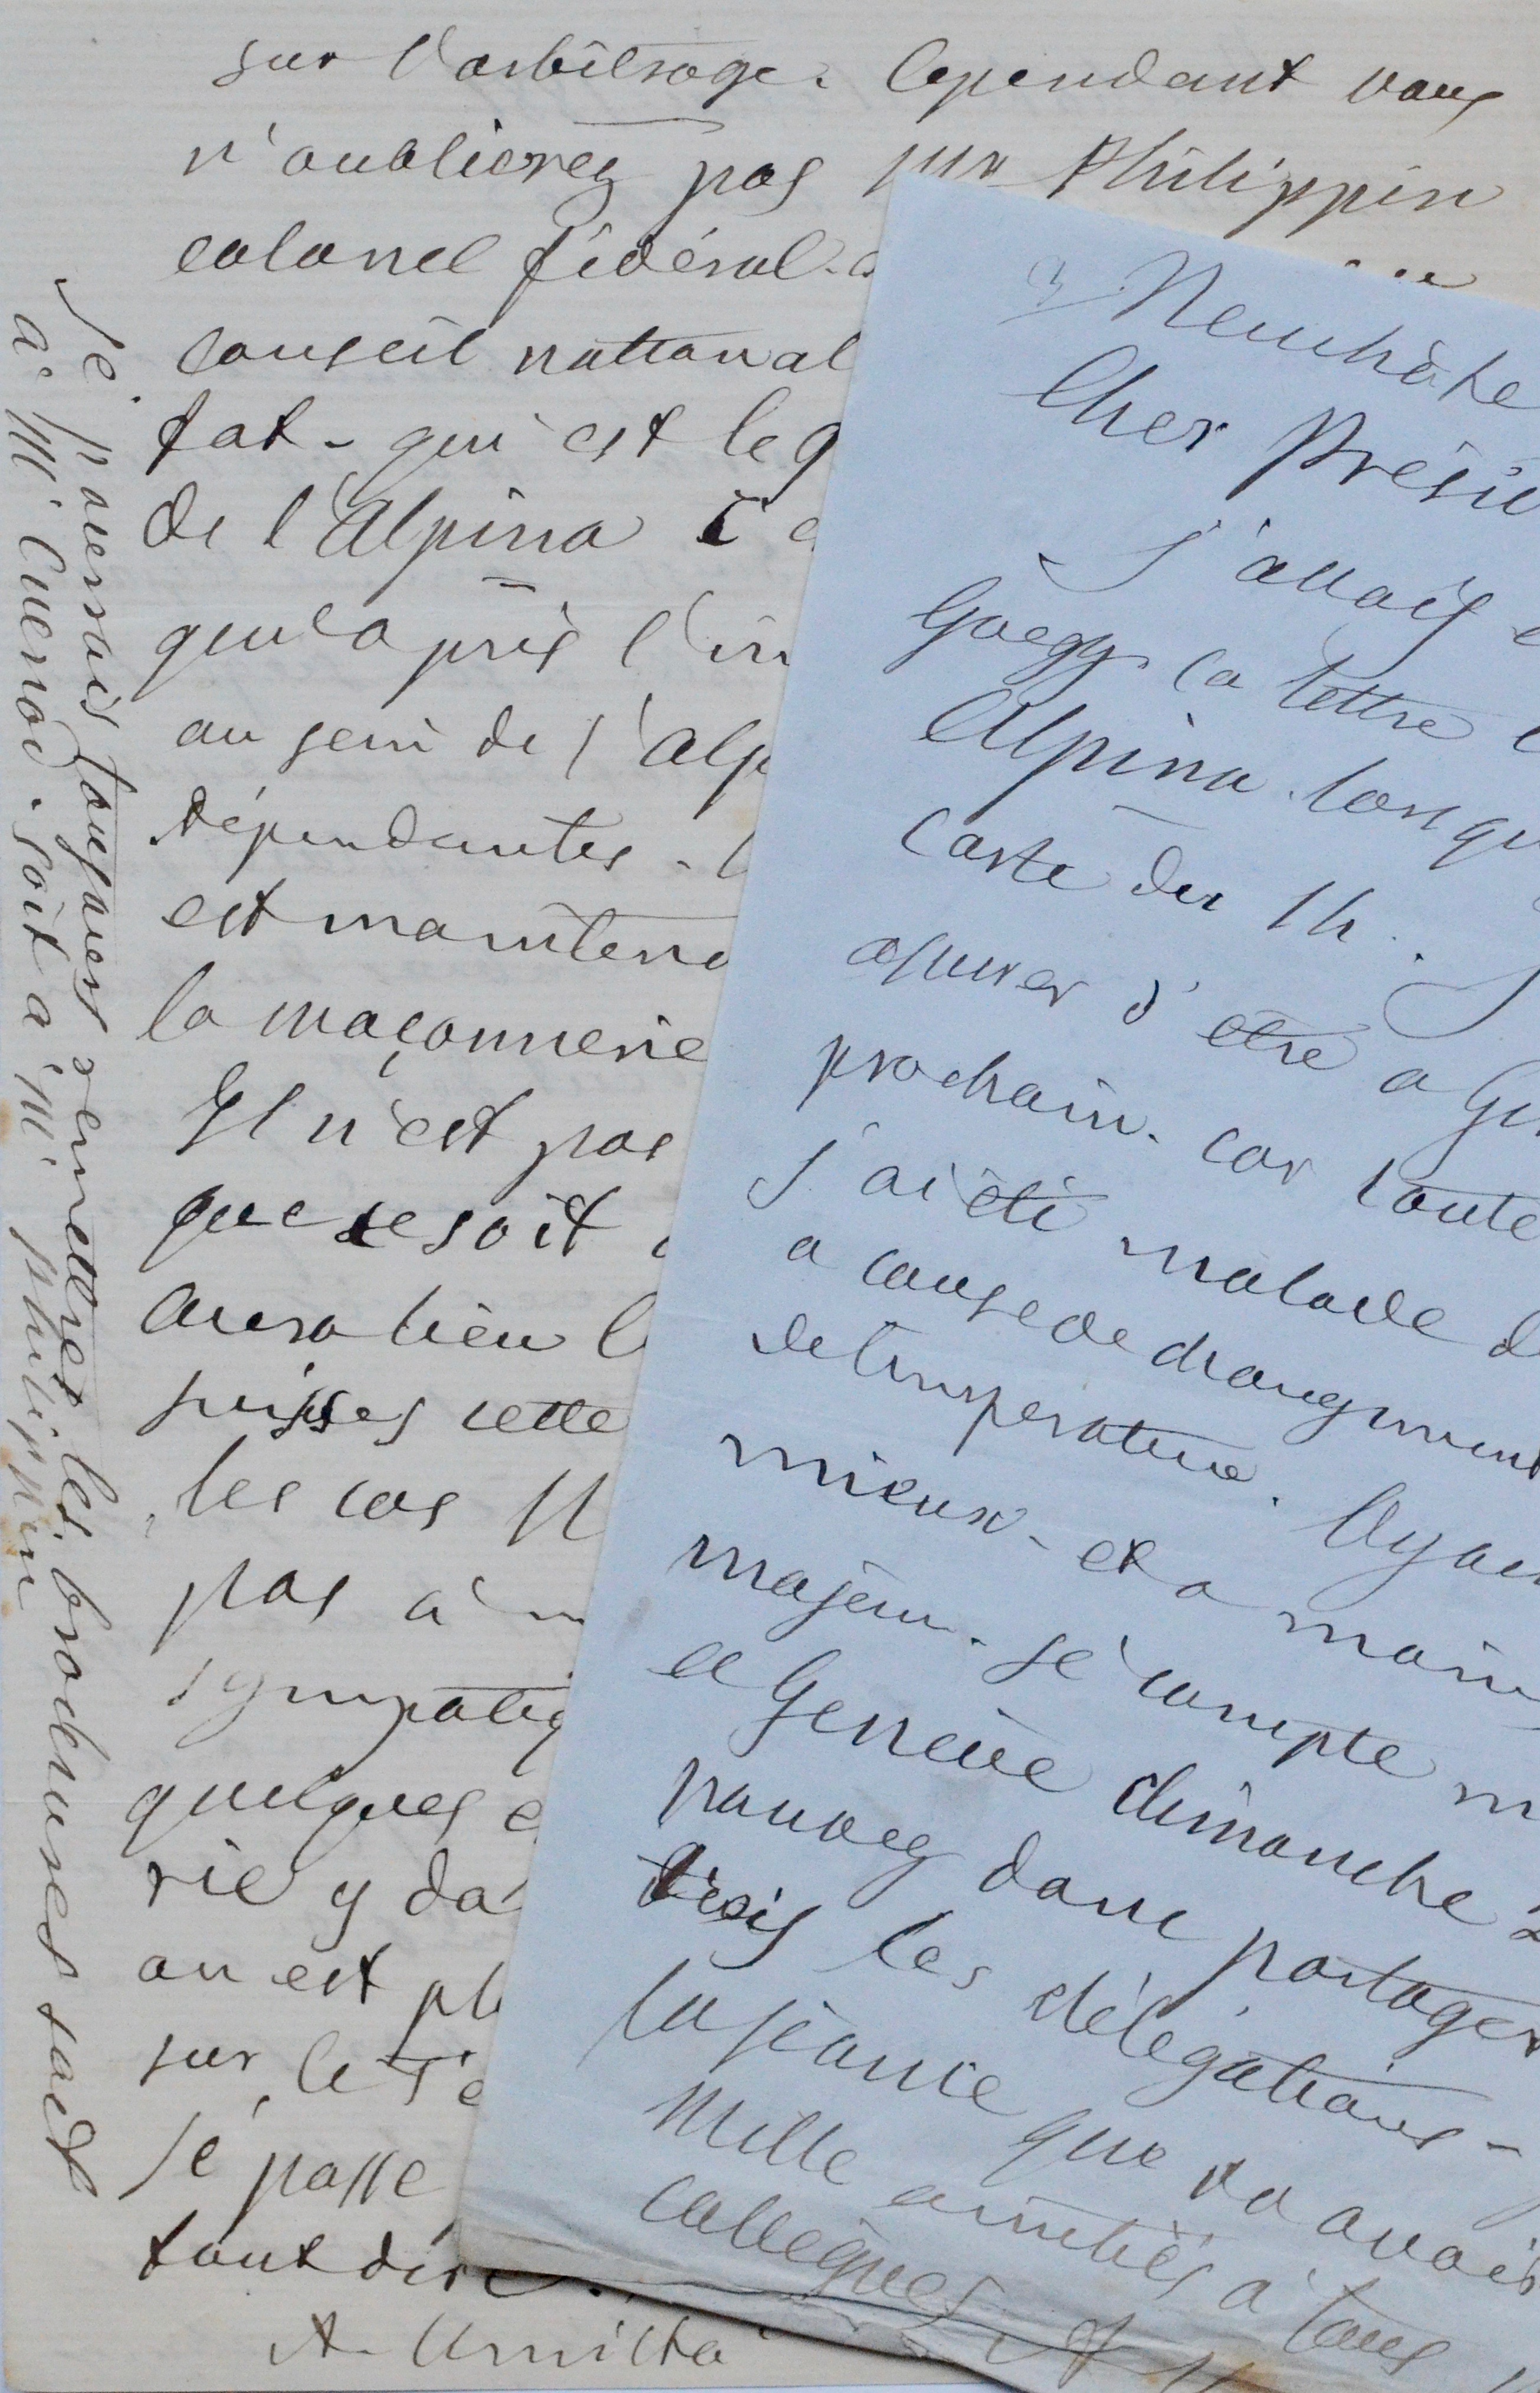 sur l'arbitrage. Cependant vous
n'oublierez pas Mr Philippin
colonel fédéral.
conseil national
tat - qui est le
de l'Alpina
qu'après l'in
au sein de l'Alp
dépendantes -
est maintena
la maçonnerie
Il n'est pas
que ce soit
aura lieu
puisses cette
les cas
pas à
sympatiq
quelques
rie y da
on est pl
sur le Te
Je passe
tout dire.
A. Umiltà
Je pourrais toujours remettre les brochures soit
à Mr Cuenod. soit à Mr philippin
Neuchâte
Cher Présid
J'avais e
Goegg la lettre
Alpina lorsqu
carte du 14.
assurer d'être a Ge
prochain. car toute
J'ai été malade d
a cause de changement
de temperature. Aya
mieux - et a moin
majeur. je compte m
a Genève dimanche 2
pouvez donc partager
trois les délégations -
la séance que va avoir
Mille amitiés à tous
collègues